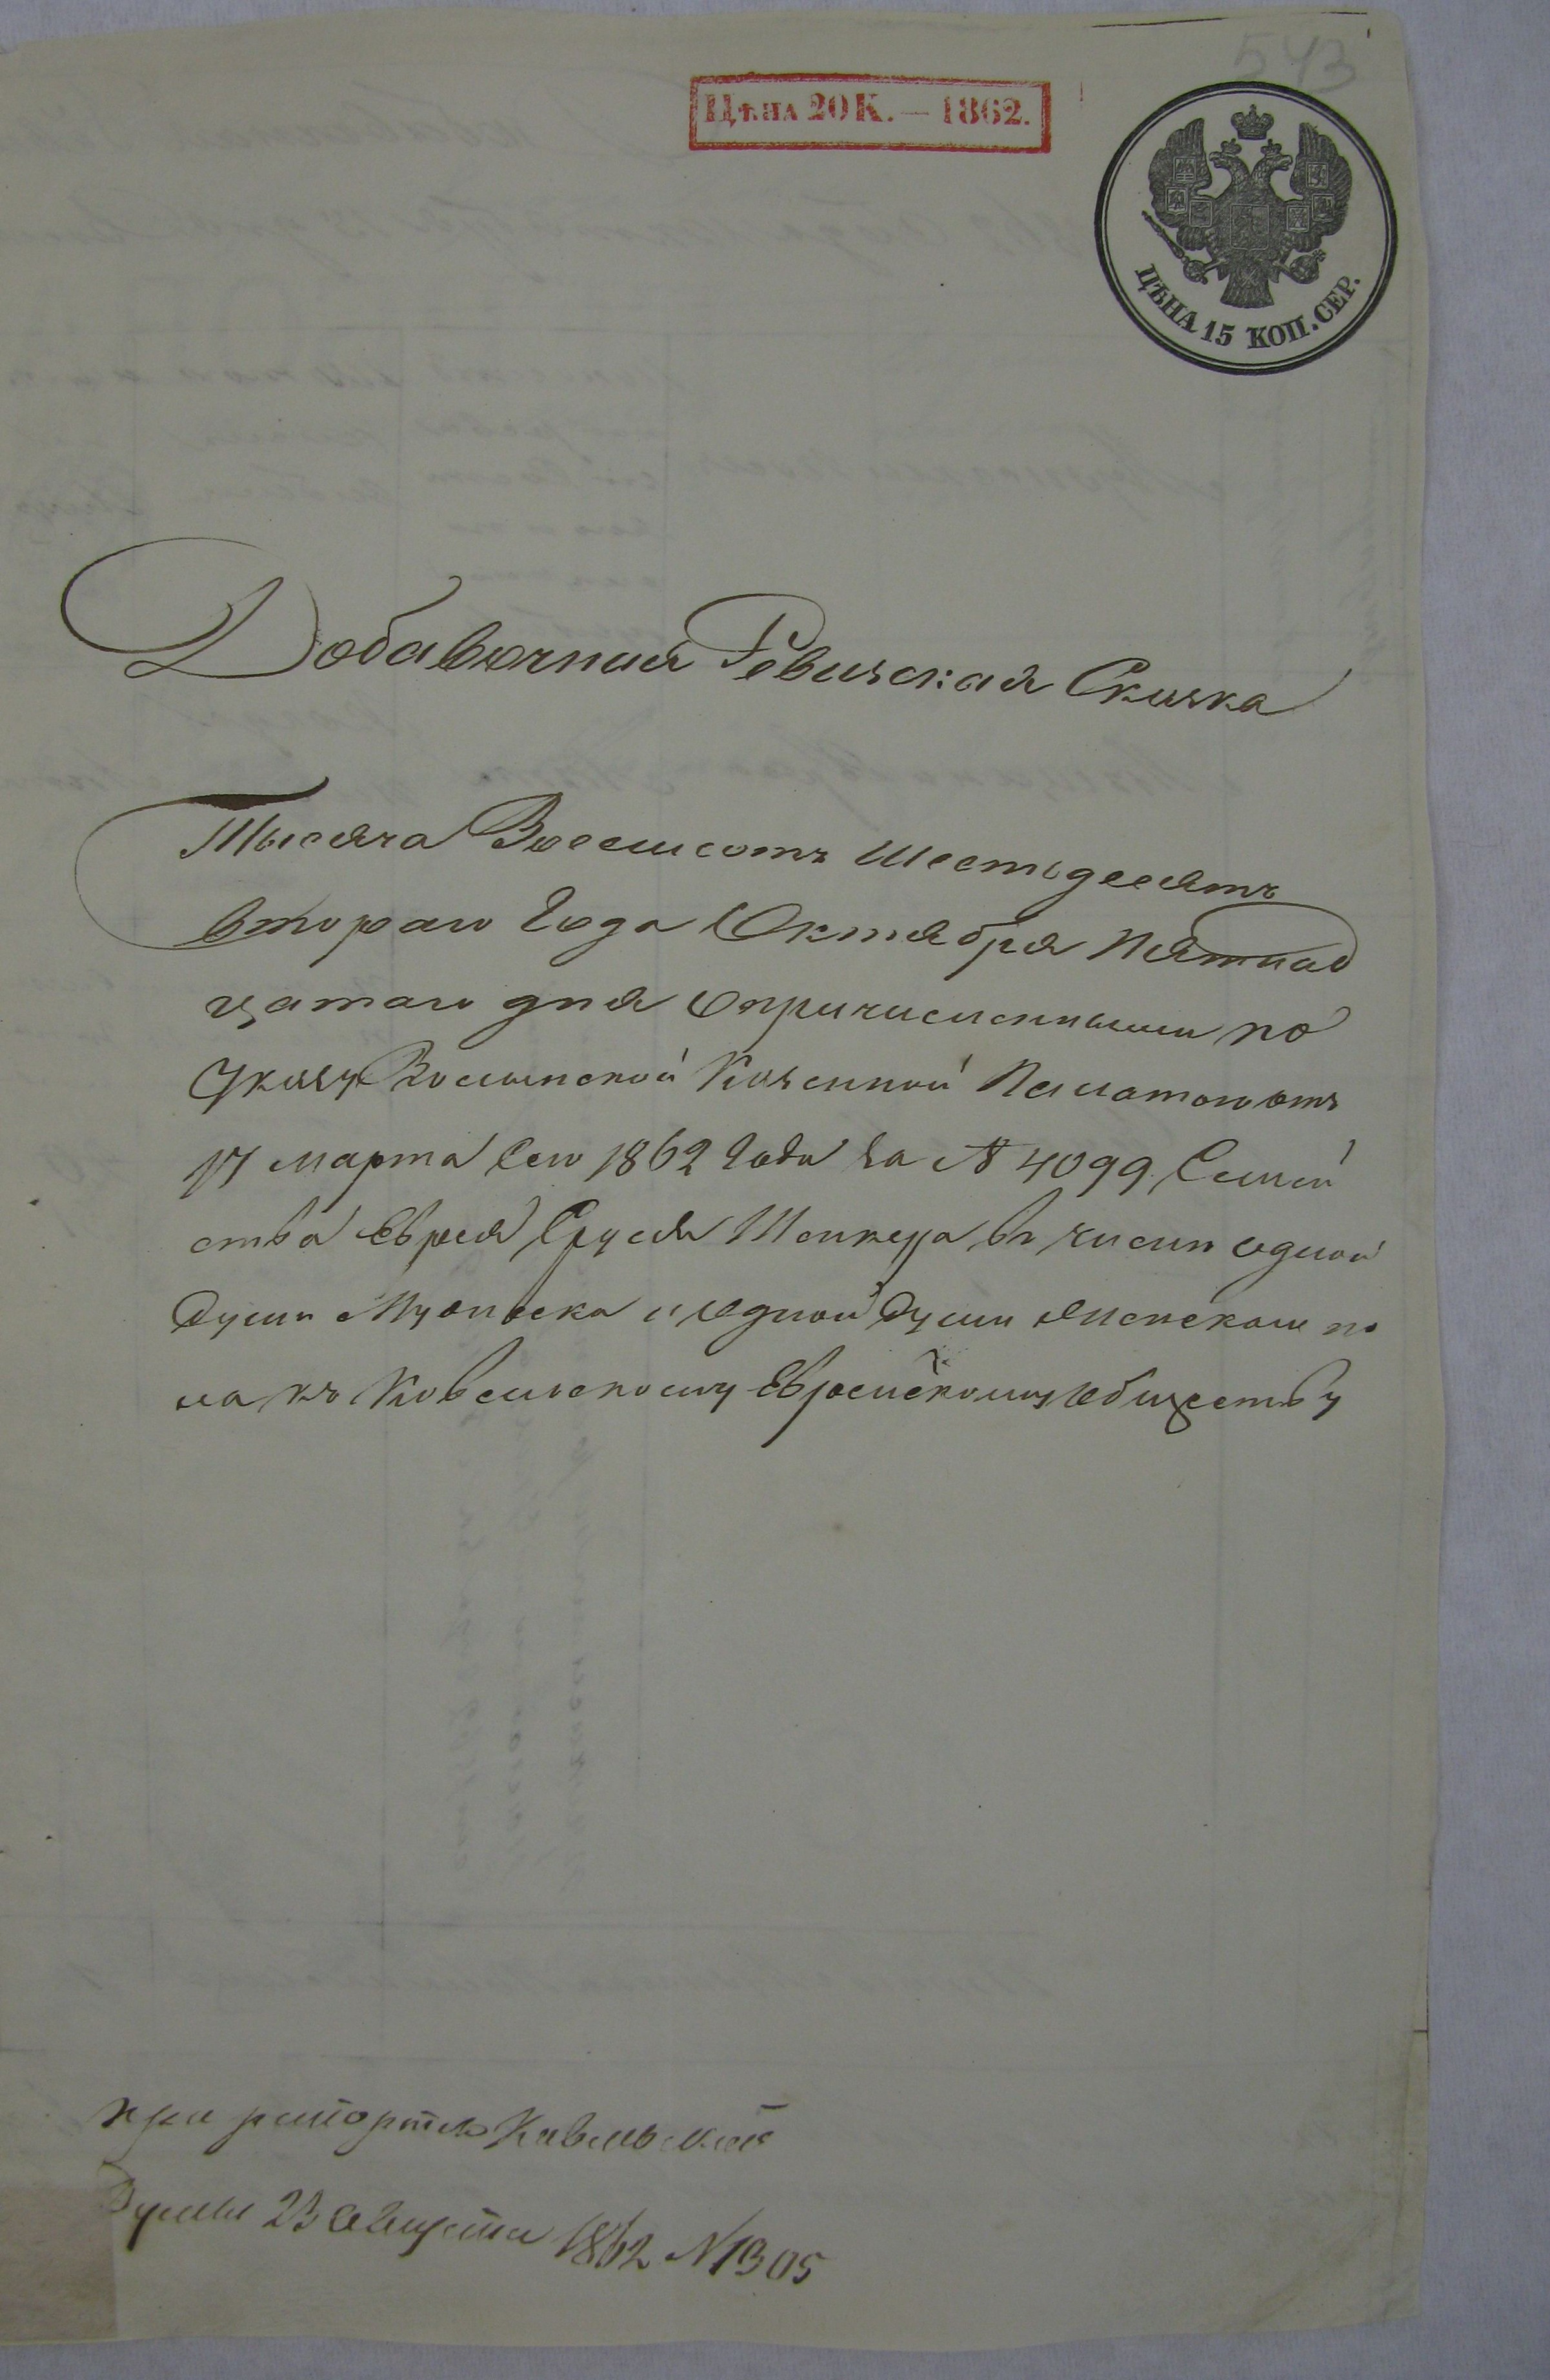 543
Цѣна 20 К. — 1862.
ЦѢНА 15 КОП. СЕР.
Добавочная Ревизская Сказка
Тысяча Восемсотъ Шестьдесятъ
втораго Года Октября Пятнад
цатаго дня О причисленными по
Указу Волынской Казенной Палатою отъ
17 марта сего 1862 Года за № 4099. Семей
ства Еврея Сруля Шенкера въ числѣ одной
души Мужеска и одной души Женскаго по
ла къ Ковельскому Еврейскому Обществу
при рапортѣ Ковельской
Думы 23 Августа 1862 № 1305